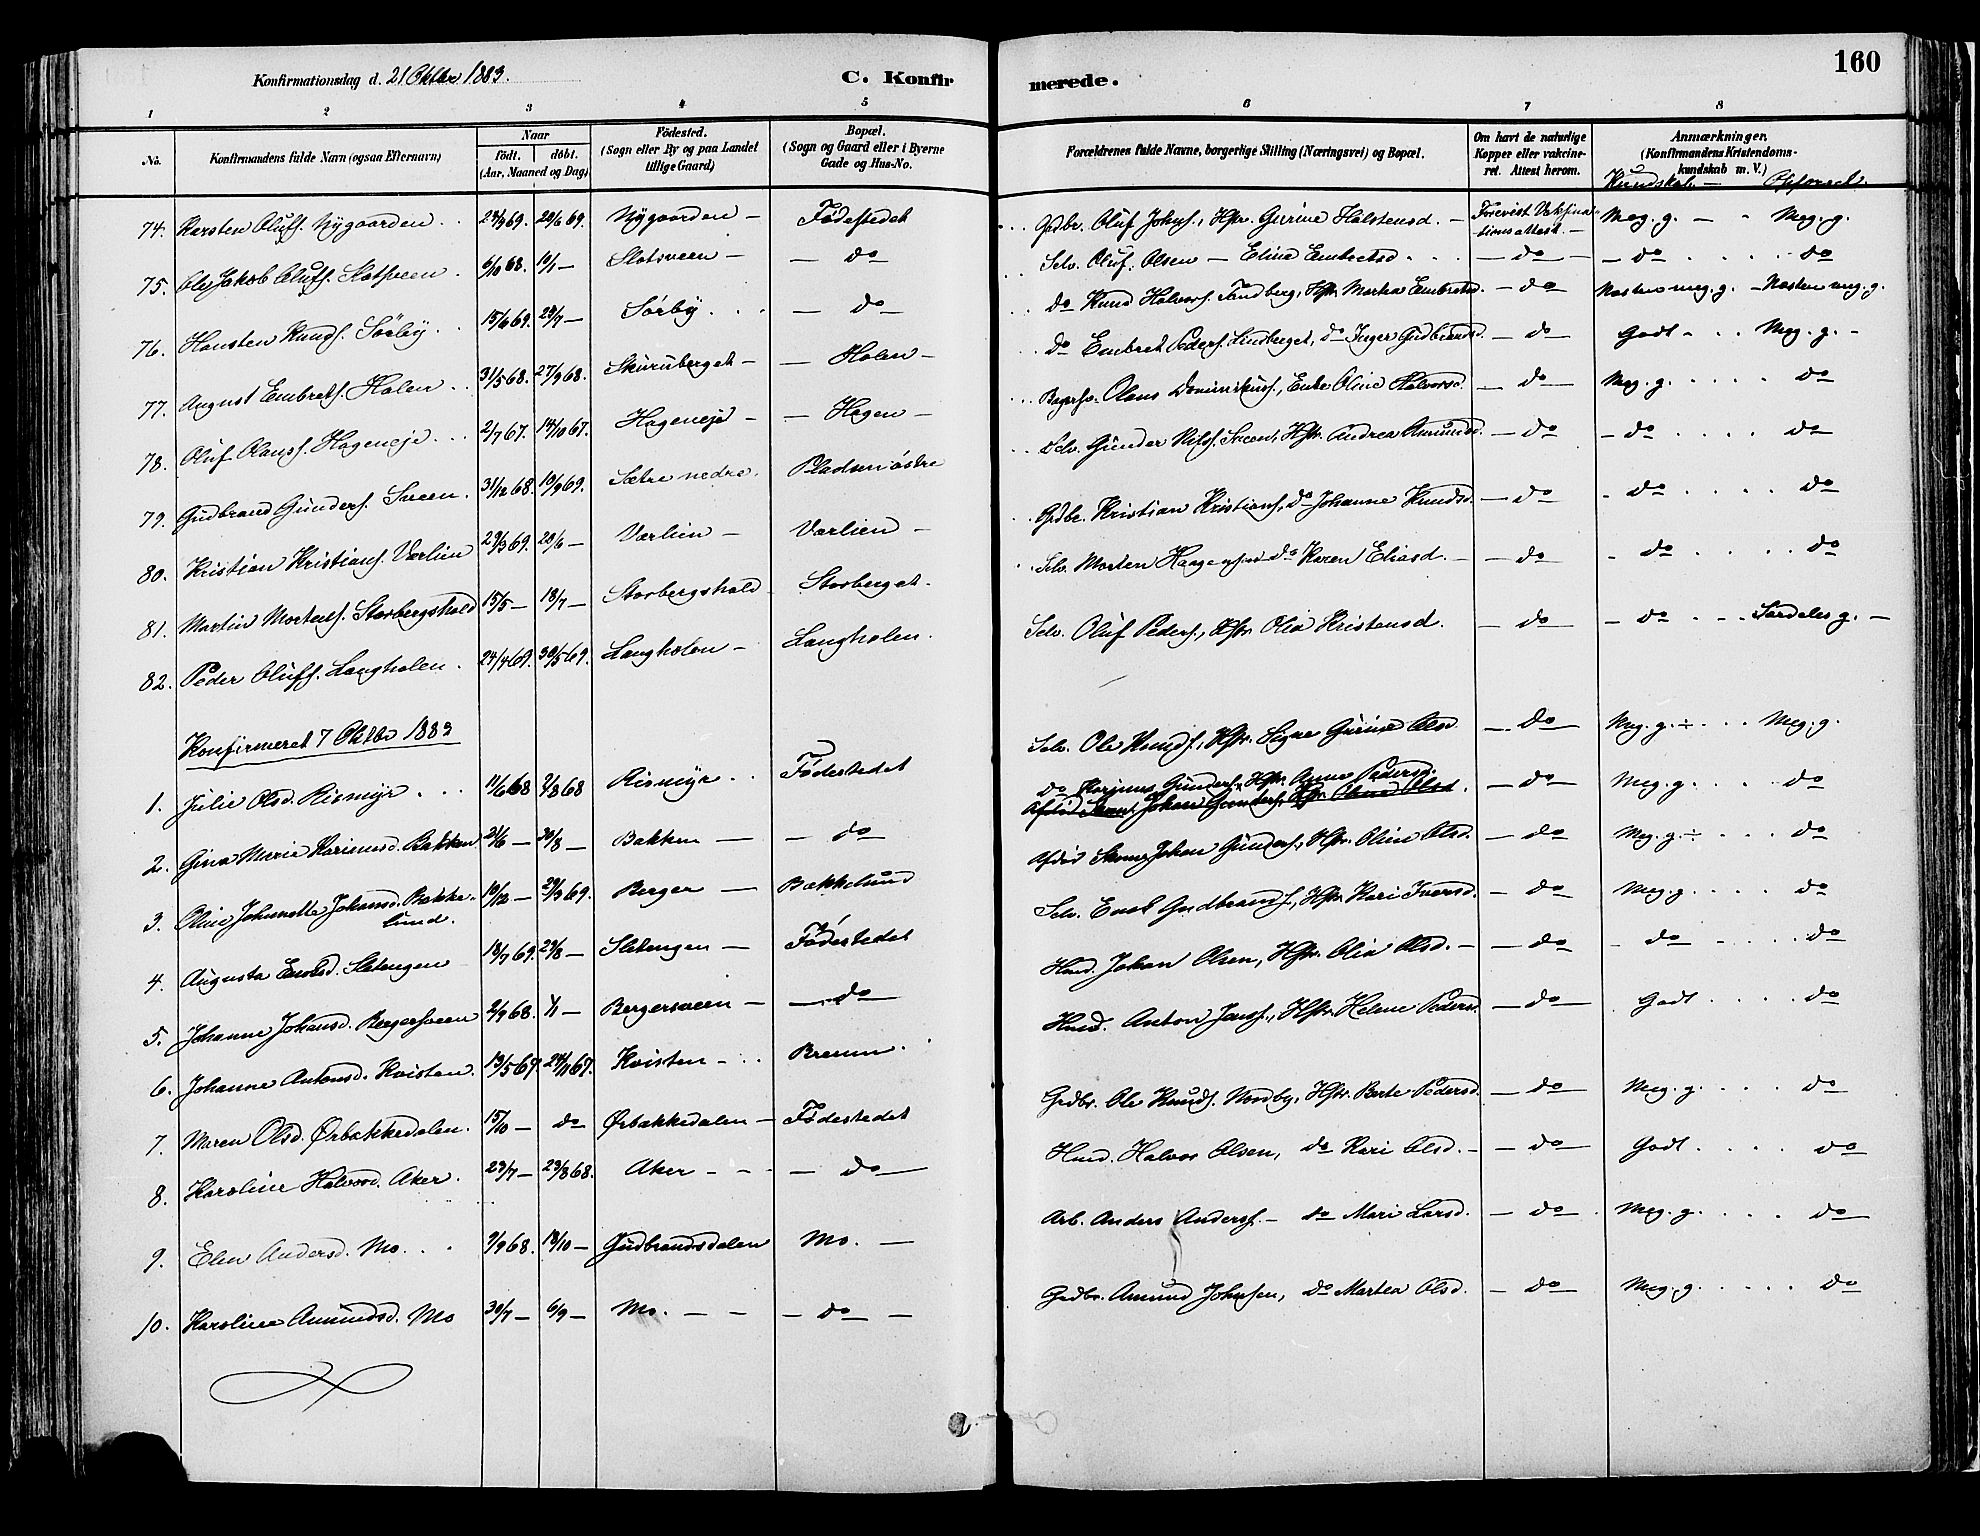 160
Konfirmationsdag d. 21 Oktbr 1883. C. Konfirmerede.
1 2 3 4 5 6 7 8
No. Konfirmandens fulde Navn (ogsaa Efternavn) Naar født. døbt. (Aar, Maaned og Dag) Fødested. (Sogn eller By og paa Landet tillige Gaard) Bopæl. (Sogn og Gaard eller i Byerne Gade og Hus-No. Forældrenes fulde Navne, borgerlige Stilling (Næringsvei) og Bopæl. Om havt de naturlige Kopper eller vakcineret. Attest herom. Anmærkninger. (Konfirmandens Kristendomskundskab m. V.)
Kundskab —
74. Karsten Olufs. Nygaarden 20/6 69. Nygaarden — Fødestedet Grdbr. Oluf Johns., Hstr. Gurine Halstensd. — Forevist Vakcinationsattest. — Meg. g. — Meg. g.
75. Ole Jakob Olufs. Slotsveen 6/10 68. 10/1 — Slotsveen — — do Selv. Oluf Olsen — Eline Embretsd — do — — do do
76. Knuds. Sørby 15/6 69. 29/7 — Sørby — do do Knud Halvors. Sandberg, Hstr. Marthea Embretsd. — do Næsten meg. g. — Næsten meg. g.
77. August Embrets. Holen 31/5 68. 27/9 68. Skuruberget — — Holen — do Embret Peders. Lindberget, do Inger Gudbrandsd. — do Godt — Meg. g. —
78. Oluf Olauss. Hageneje 2/7 67. 14/10 67. Hageneje — — Hagen — Olaus Dominikuss., Enke Oline Halvorsd. — do Meg. g. do
79. Gudbrand Gunders. Sveen 31/12 68. 10/9 69. Sætre nedre Pladsen østre Selv. Gunder Nilss. Sveen, Hstr. Andrea Amundsd. — do — do do
80. Kristian Kristians. Varlien 29/3 69. 20/6 — Varlien — Varlien — Grdbr. Kristian Kristians., do Johanne Knudsd. — do — do do
81. Martin Mortens. Storbergshold 15/5 — 18/7 — Storbergshold Storberget. Selv. Morten Haagensen do Karen Eliasd. — do — do do
82. Peder Olufs. Langholen 24/4 69. 30/5 69. Langholen — Langholen. Selv. Oluf Peders., Hstr. Olia Kristensd. — do — do Særdeles g. —
Konfirmeret 7 Oktbr 1883
1. Julie Olsd. Rismyr 11/6 68 2/8 68 Rismyr Fødestedet Selv. Ole Knuds., Hstr. Signe Gurine Olsd — do — Meg. g. ÷ Meg. g.
2. Gina Marie Karinusd. Bakken 21/6 — 30/8 — Bakken — — do do Karinus Gunders., Hstr. Anne Pedersd. — do — Meg. g. do
Afdød Johan Gunders., Hstr. Oline Olsd.
3. Oline Johanette Johansd. Bakkelund. 10/12 — 29/3 69. Berger — Bakkelund Afdød Johan Gunders., Hstr. Oline Olsd. — do Meg. g. ÷ do
4. Augusta Enoksd. Sletengen 18/7 69. 29/8 — Sletengen — Fødestedet Selv. Enok Gudbrands., Hstr. Kari Iversd. — do Meg. g. do
5. Johanne Johansd. Bergersveen 2/9 68. 1/1 — Bergersveen — — do — Hmd. Johan Olsen, Hstr. Olia Olsd. — — do — do do
6. Johanne Antonsd. Kvisten. 19/5 67. 24/11 67. Kvisten — Brenn. Hmd. Anton Jenss., Hstr. Helene Pedersd. — do — Godt do
7. Maren Olsd. Ørbækkedalen. 15/10 — do Ørbækkedalen — Fødestedet Grdbr. Ole Knuds. Nordby, Hstr. Berte Pedersd — do — Meg. g. do
8. Karoline Halvorsd. Aker. 23/7 — 23/8 68. Aker — — — do — Hmd. Halvor Olsen, do Kari Olsd. — — do — Godt do
9. Elen Andersd. Mo 9/9 68. 18/10 — Gudbrandsdalen Mo. — Arb. Anders Anderss. — do Mari Larsd. — do — Meg. g. do
10. Karoline Amundsd. Mo 30/7 — 6/9 — Mo. — — — do — Grdbr. Amund Johnsen, do Marthea Olsd. — do Meg. g. do